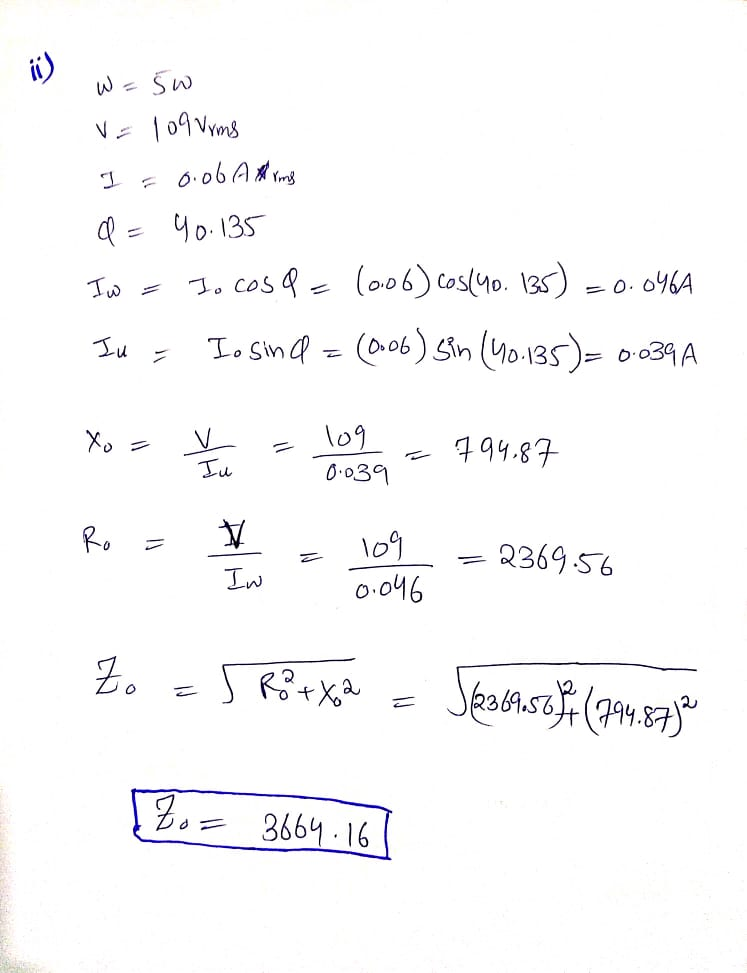 ii)
W = 5W
V = 109 Vrms
I = 0.06 A rms
φ = 40.135
Iw = I₀ cos φ = (0.06) cos(40.135) = 0.046A
Iu = I₀ sin φ = (0.06) sin (40.135) = 0.039 A
X₀ = V / Iu = 109 / 0.039 = 794.87
R₀ = V / Iw = 109 / 0.046 = 2369.56
Z₀ = √(R₀² + X₀²) = √((2369.56)² + (794.87)²)
Z₀ = 3664.16